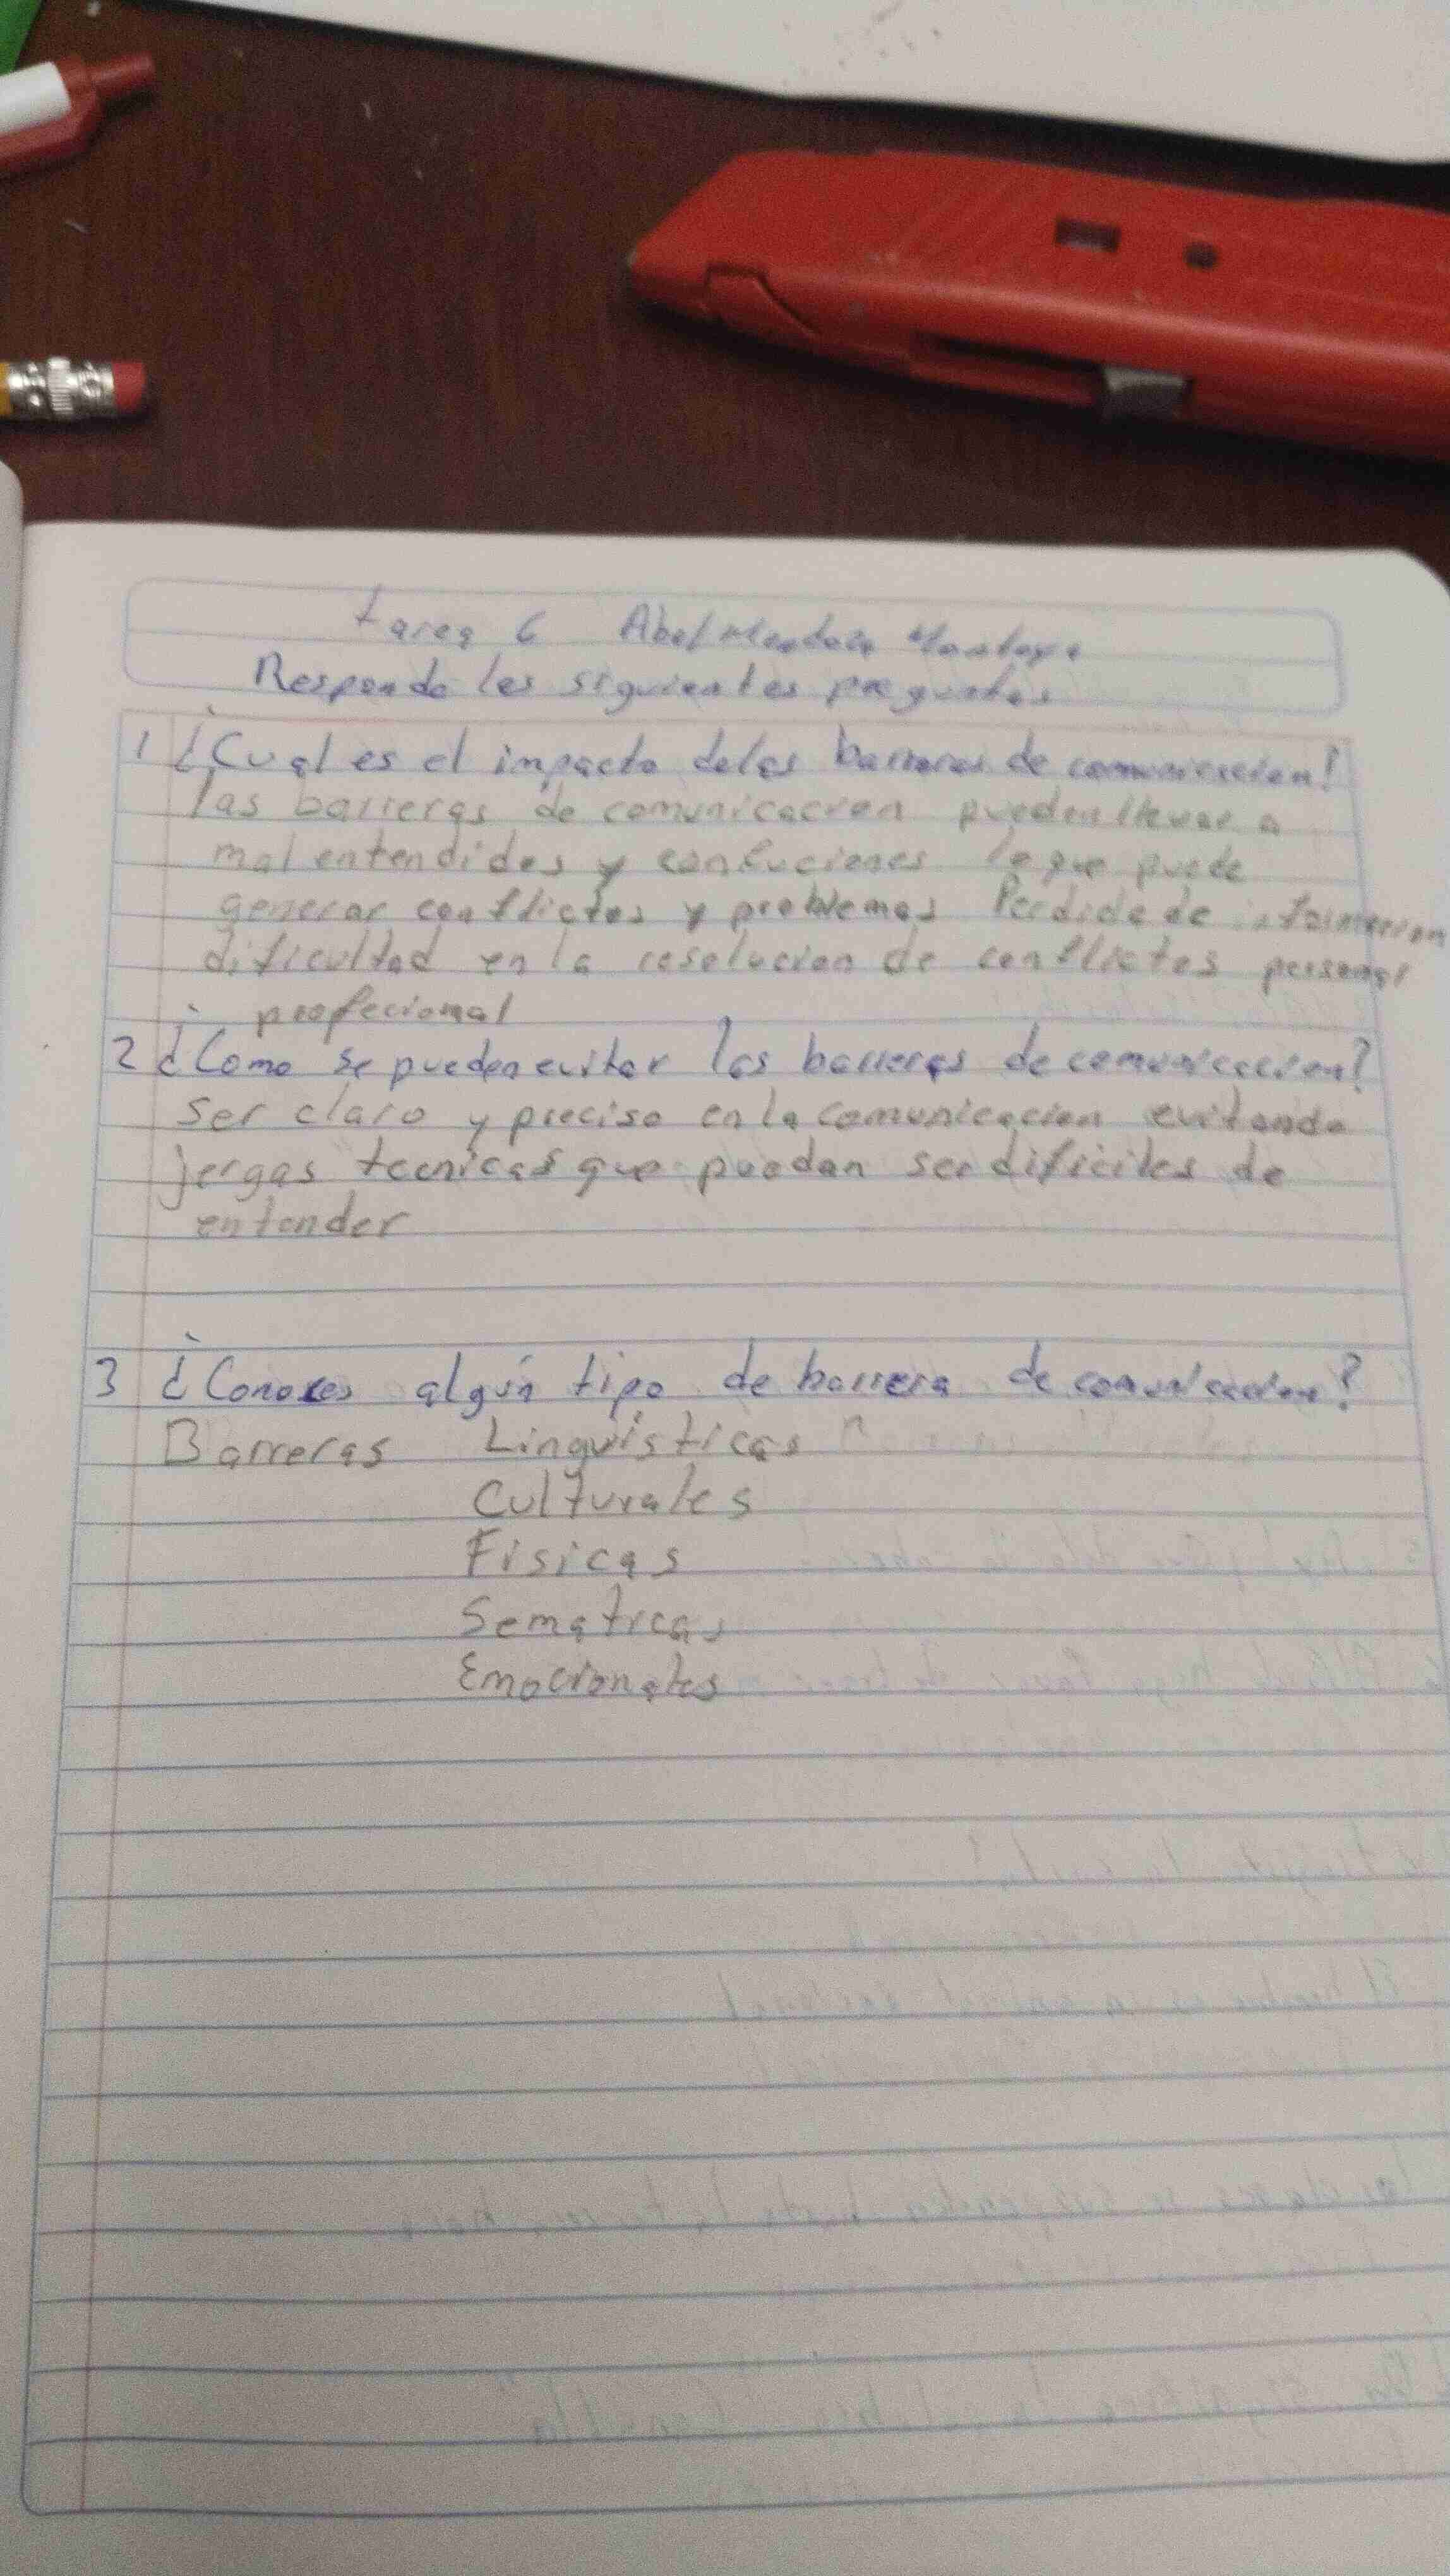 tarea 6 Abel Mendoza Montoya
Responde las siguientes preguntas
1 ¿Cual es el impacto delas barreras de comunicacion?
las barreras de comunicacion pueden llevar a
mal entendidos y confuciones lo que puede
generar conflictos y problemas Perdida de informacion
dificultad en la resolucion de conflictos personal
profecional
2 ¿Como se pueden evitar las barreras de comunicacion?
Ser claro y preciso en la comunicacion evitando
jergas tecnicas que puedan ser dificiles de
entender
3 ¿Conoces algún tipo de barrera de comunicacion?
Barreras Linguisticas
Culturales
Fisicas
Sematicas
Emocionales